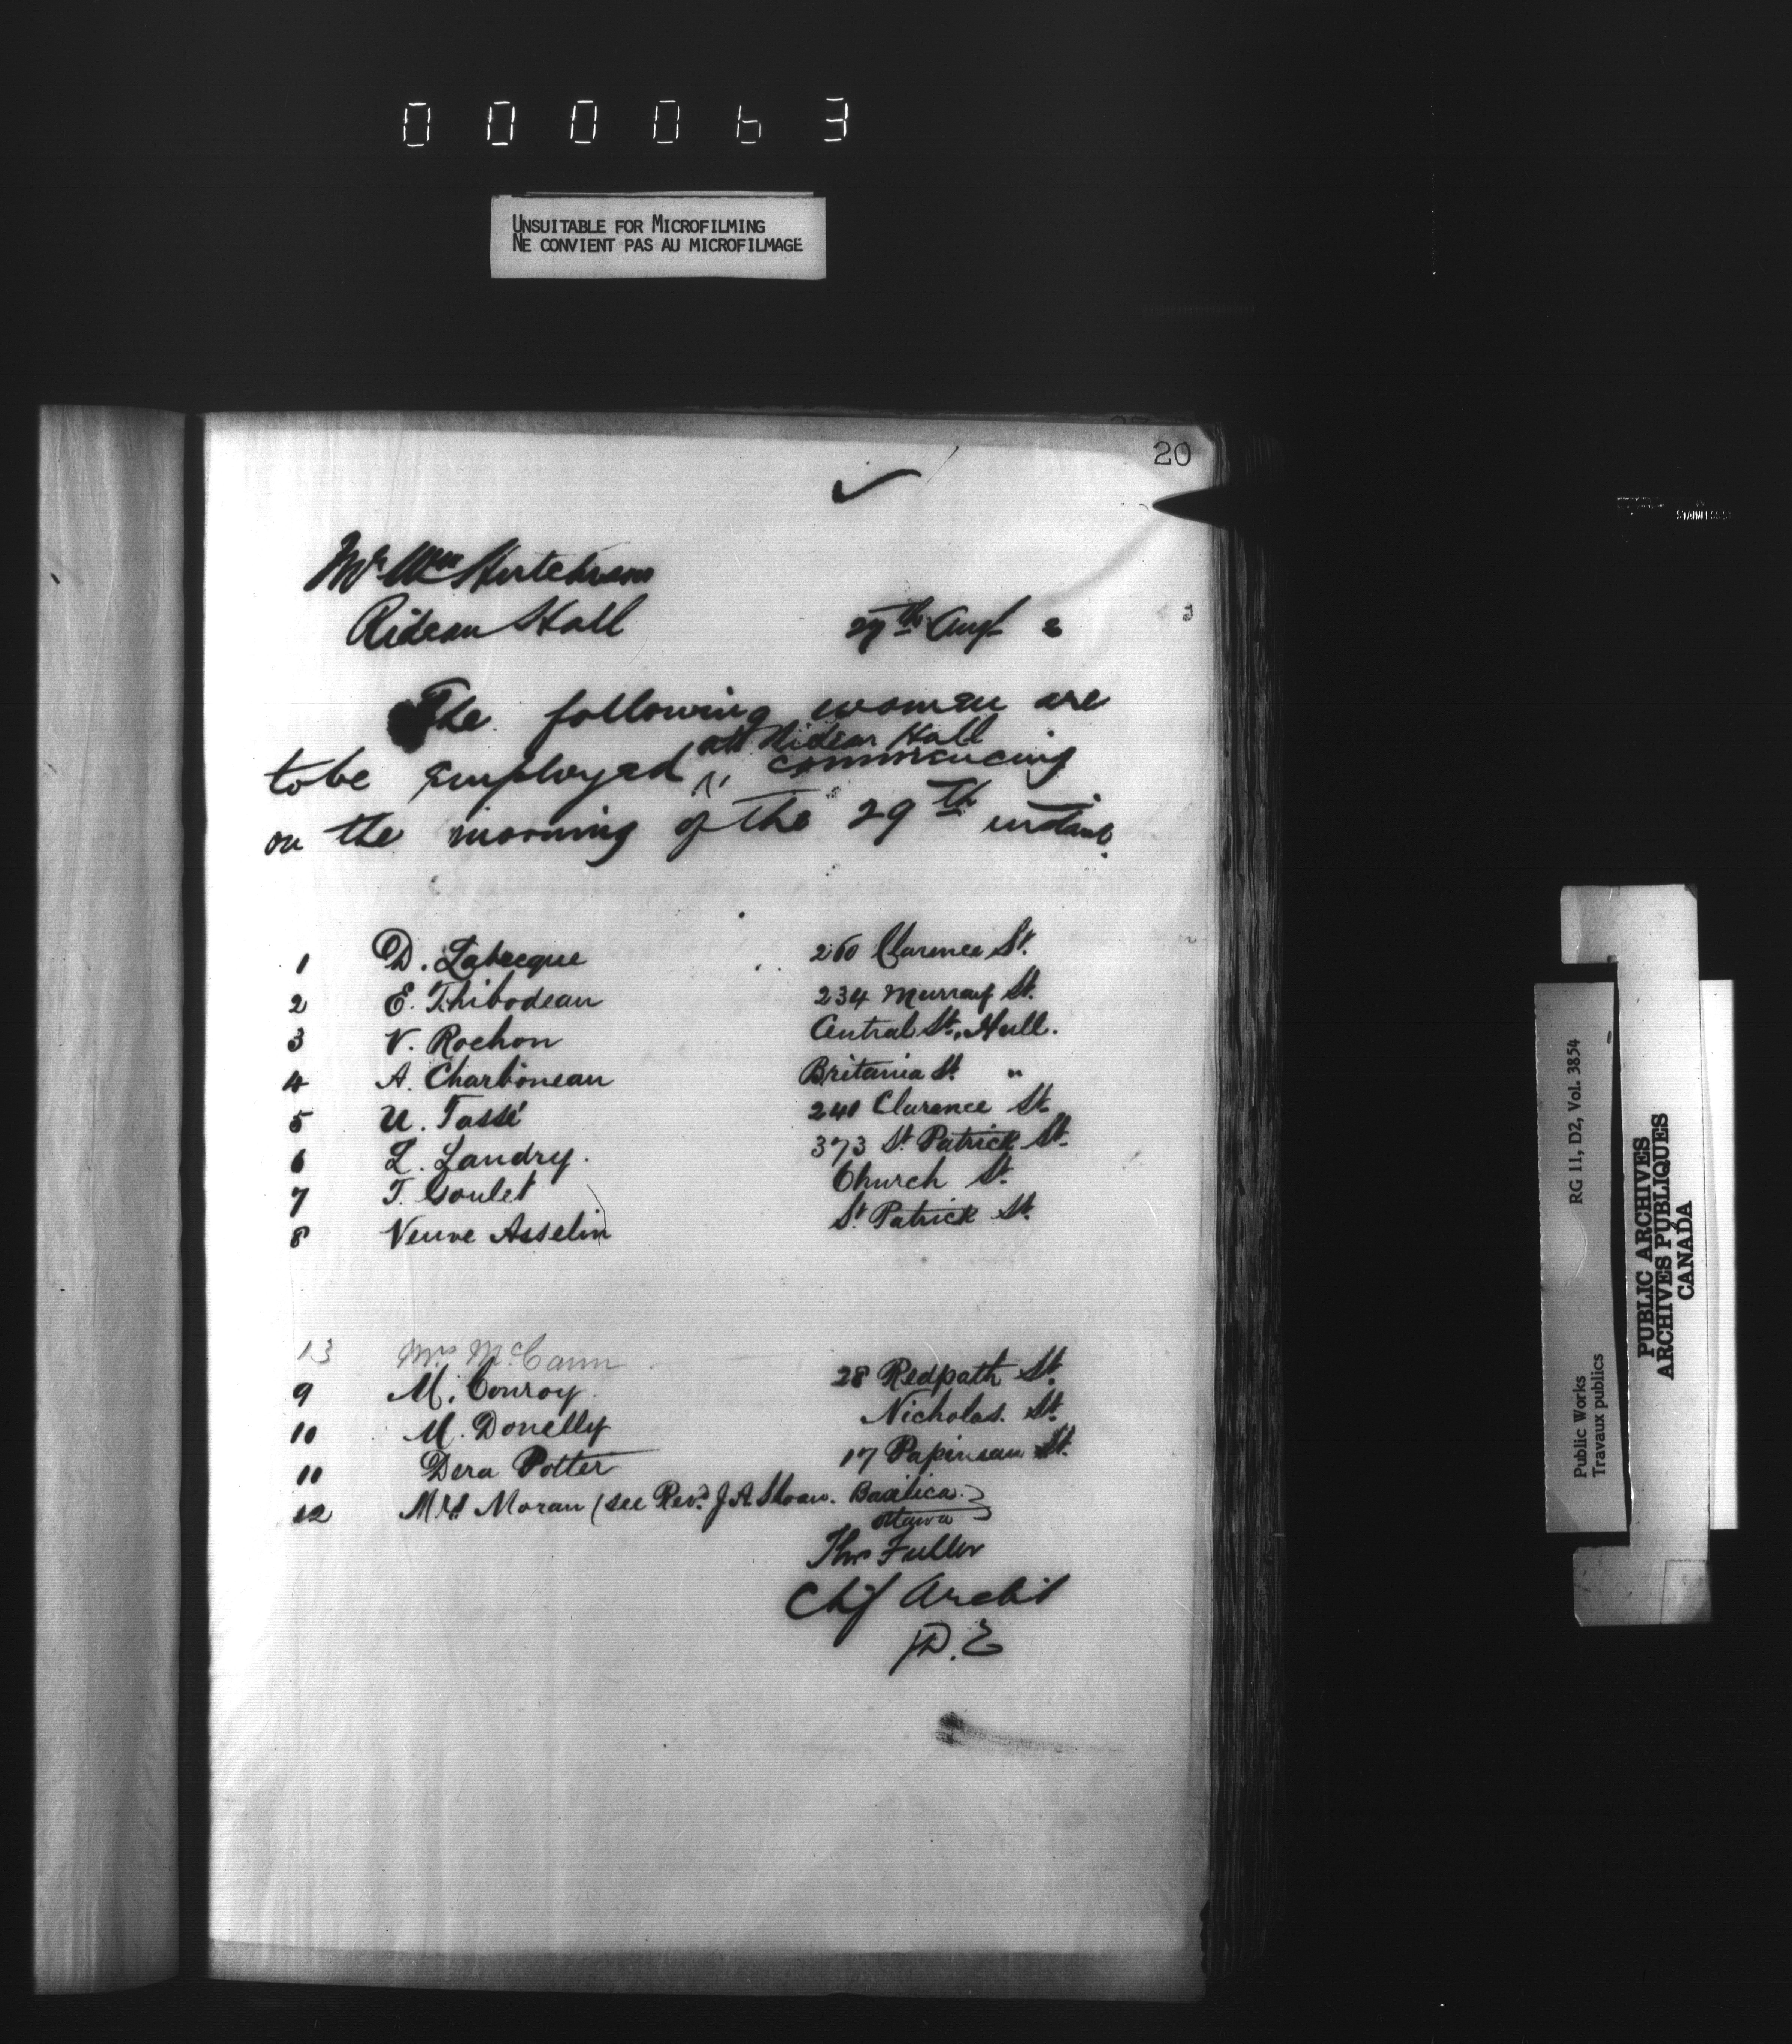 000063
UNSUITABLE FOR MICROFILMING
NE CONVIENT PAS AU MICROFILMAGE
20
Mr Wm Hutchison
Rideau Hall
27th Augt
The following women are
to be employed at Rideau Hall commencing
on the morning of the 29th instant.
1 D. Labecque 260 Clarence St.
2 E. Thibodeau 234 Murray St.
3 V. Rochon Central St., Hull.
4 A. Charboneau Britania St. "
5 U. Tassé 240 Clarence St.
6 L. Landry. 373 St. Patrick St.
7 T. Goulet Church St.
8 Veuve Asselin St. Patrick St.
13 Mrs McCann
9 M. Conroy. 28 Redpath St.
10 M. Donelly Nicholas. St.
11 Dera Potter 17 Papineau St.
12 Mrs Moran (see Revd. J A Sloan. Basilica.
Ottawa
Thos Fuller
Chf Archt
D. E
STAINLESS
RG 11, D2, Vol. 3854
Public Works
Travaux publics
PUBLIC ARCHIVES
ARCHIVES PUBLIQUES
CANADA